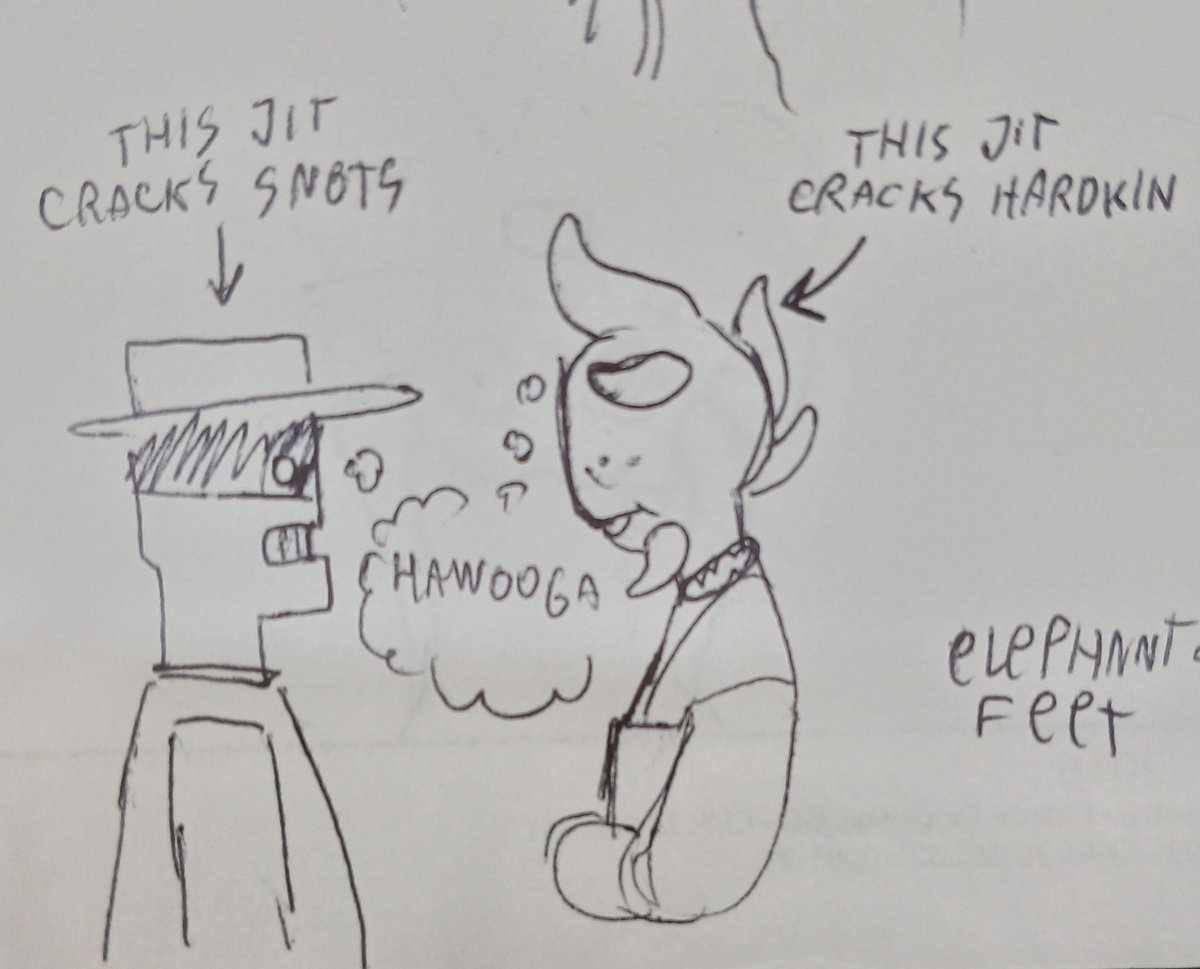 THIS JIT
CRACKS SNOTS
THIS JIT
CRACKS HARDKIN
HAWOOGA
eLePHANT
Feet